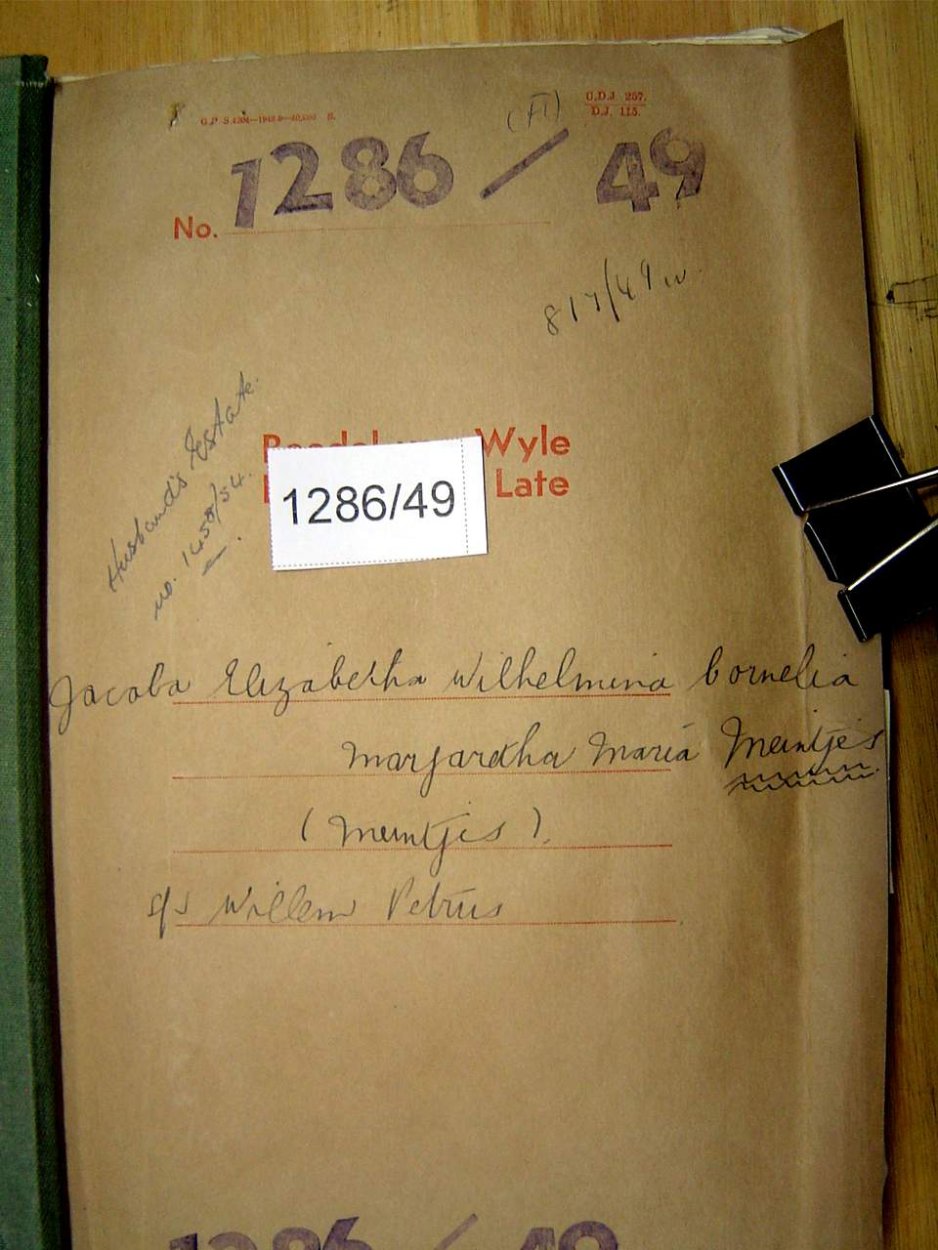 (FI)
U.D.J. 257.
D.J. 115.
1286/49
No.
817/49 w
Husband's Estate.
no. 1458/54.
Wyle
Late
1286/49
Jacoba Elizabetha Wilhelmina Cornelia
Margaretha Maria Meintjes
(Meintjes).
s/s Willem Petrus
1286/49